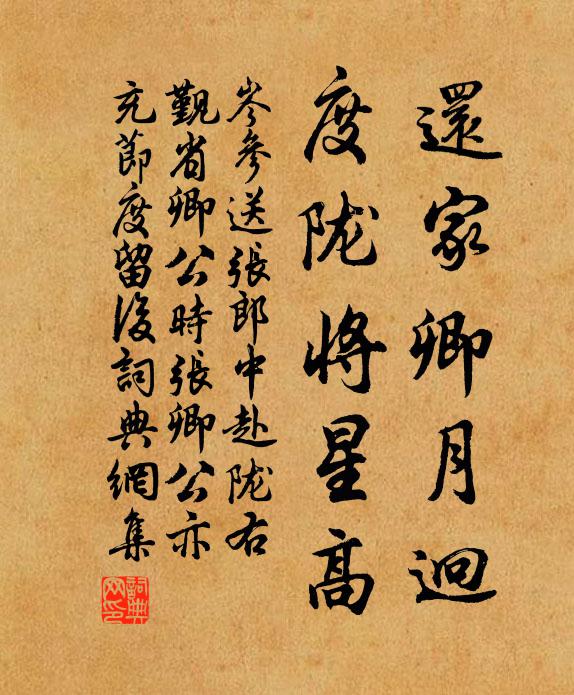 還家卿月迥
度陇將星高
岑參送張郎中赴陇右
觐省卿公時張卿公亦
充節度留後詞典網集
詞典網印